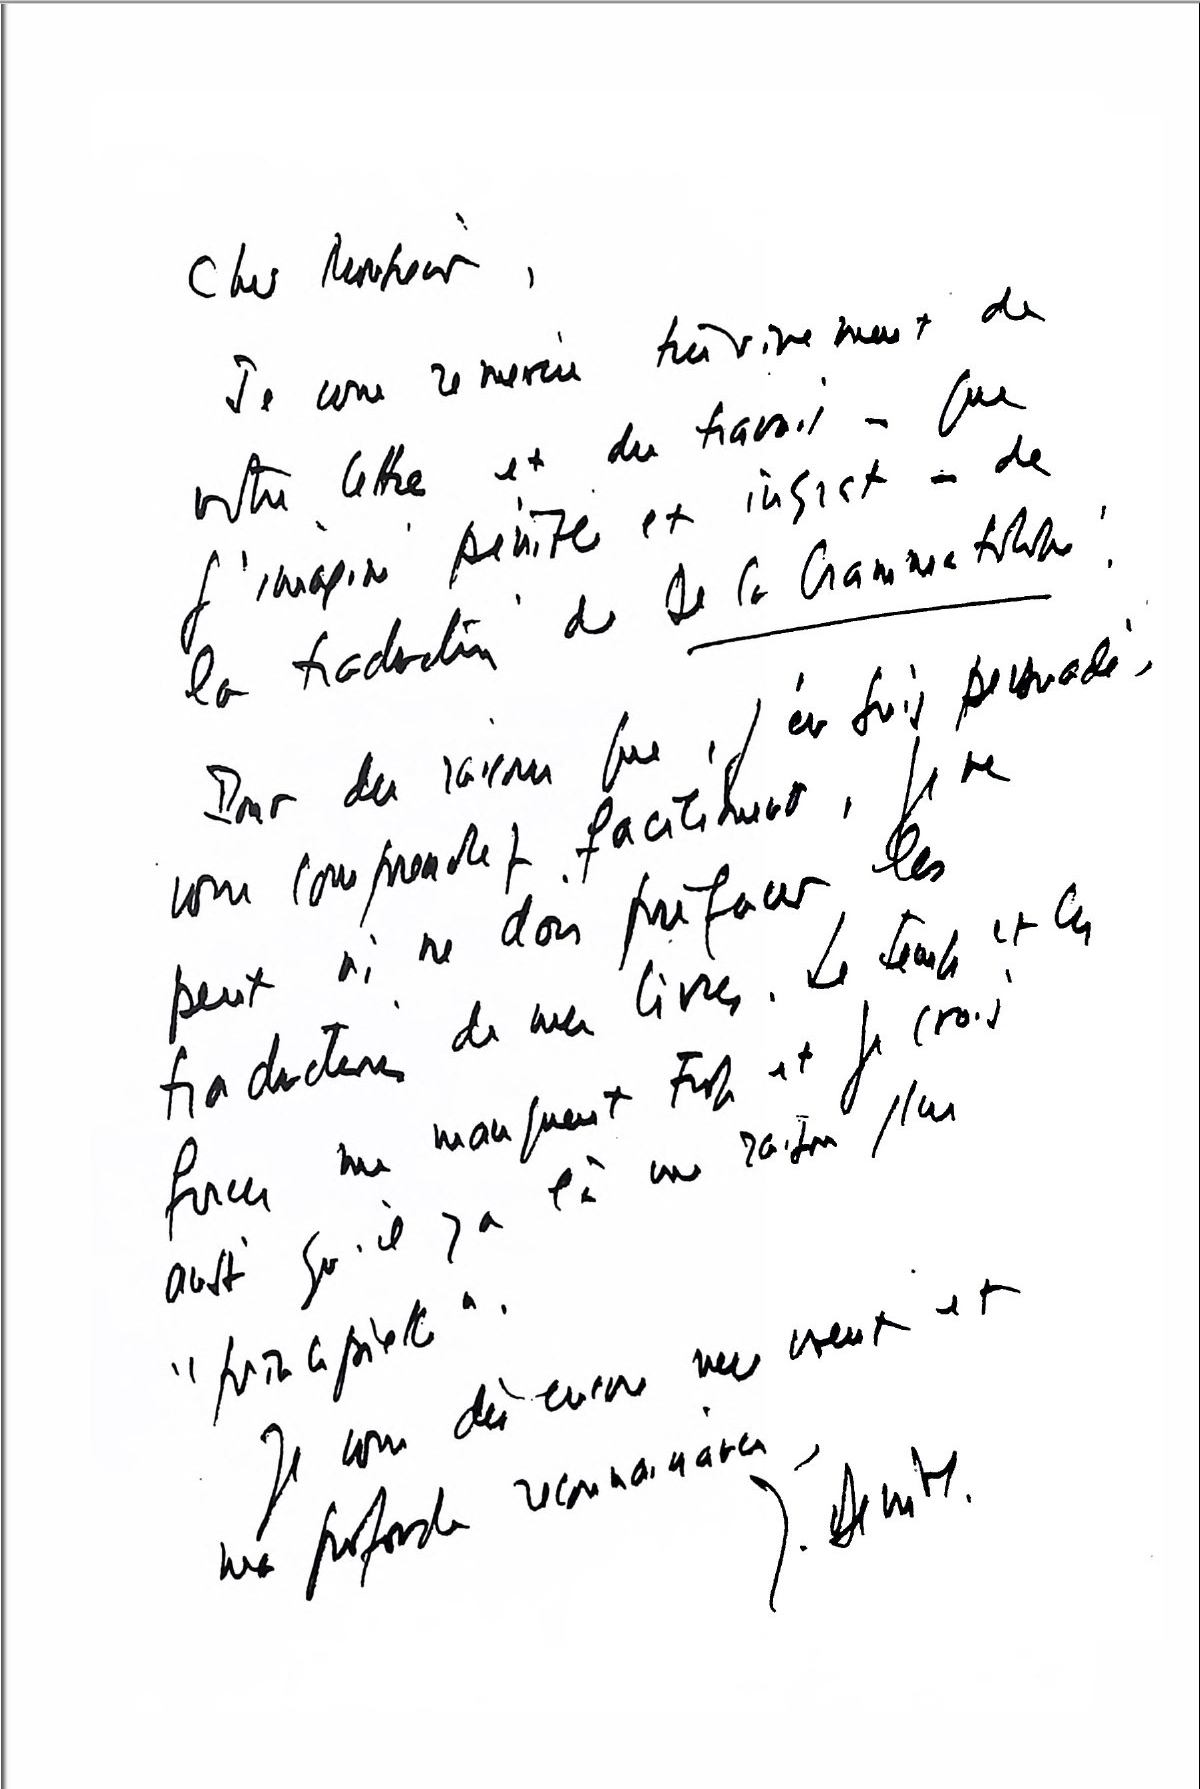 Cher Monsieur,
Je vous remercie très vivement de
votre lettre et du travail - que
j'imagine pénible et ingrat - de
la traduction de De la Grammatologie.
Pour des raisons que, j'en suis persuadé,
vous comprendrez facilement, je ne
peux ni ne dois préfacer les
traductions de mes livres. Le temps et les
forces me manquent trop et je crois
aussi qu'il y a là une raison plus
"principielle".
Je vous dis encore mes vœux et
ma profonde reconnaissance,
J. Derrida.